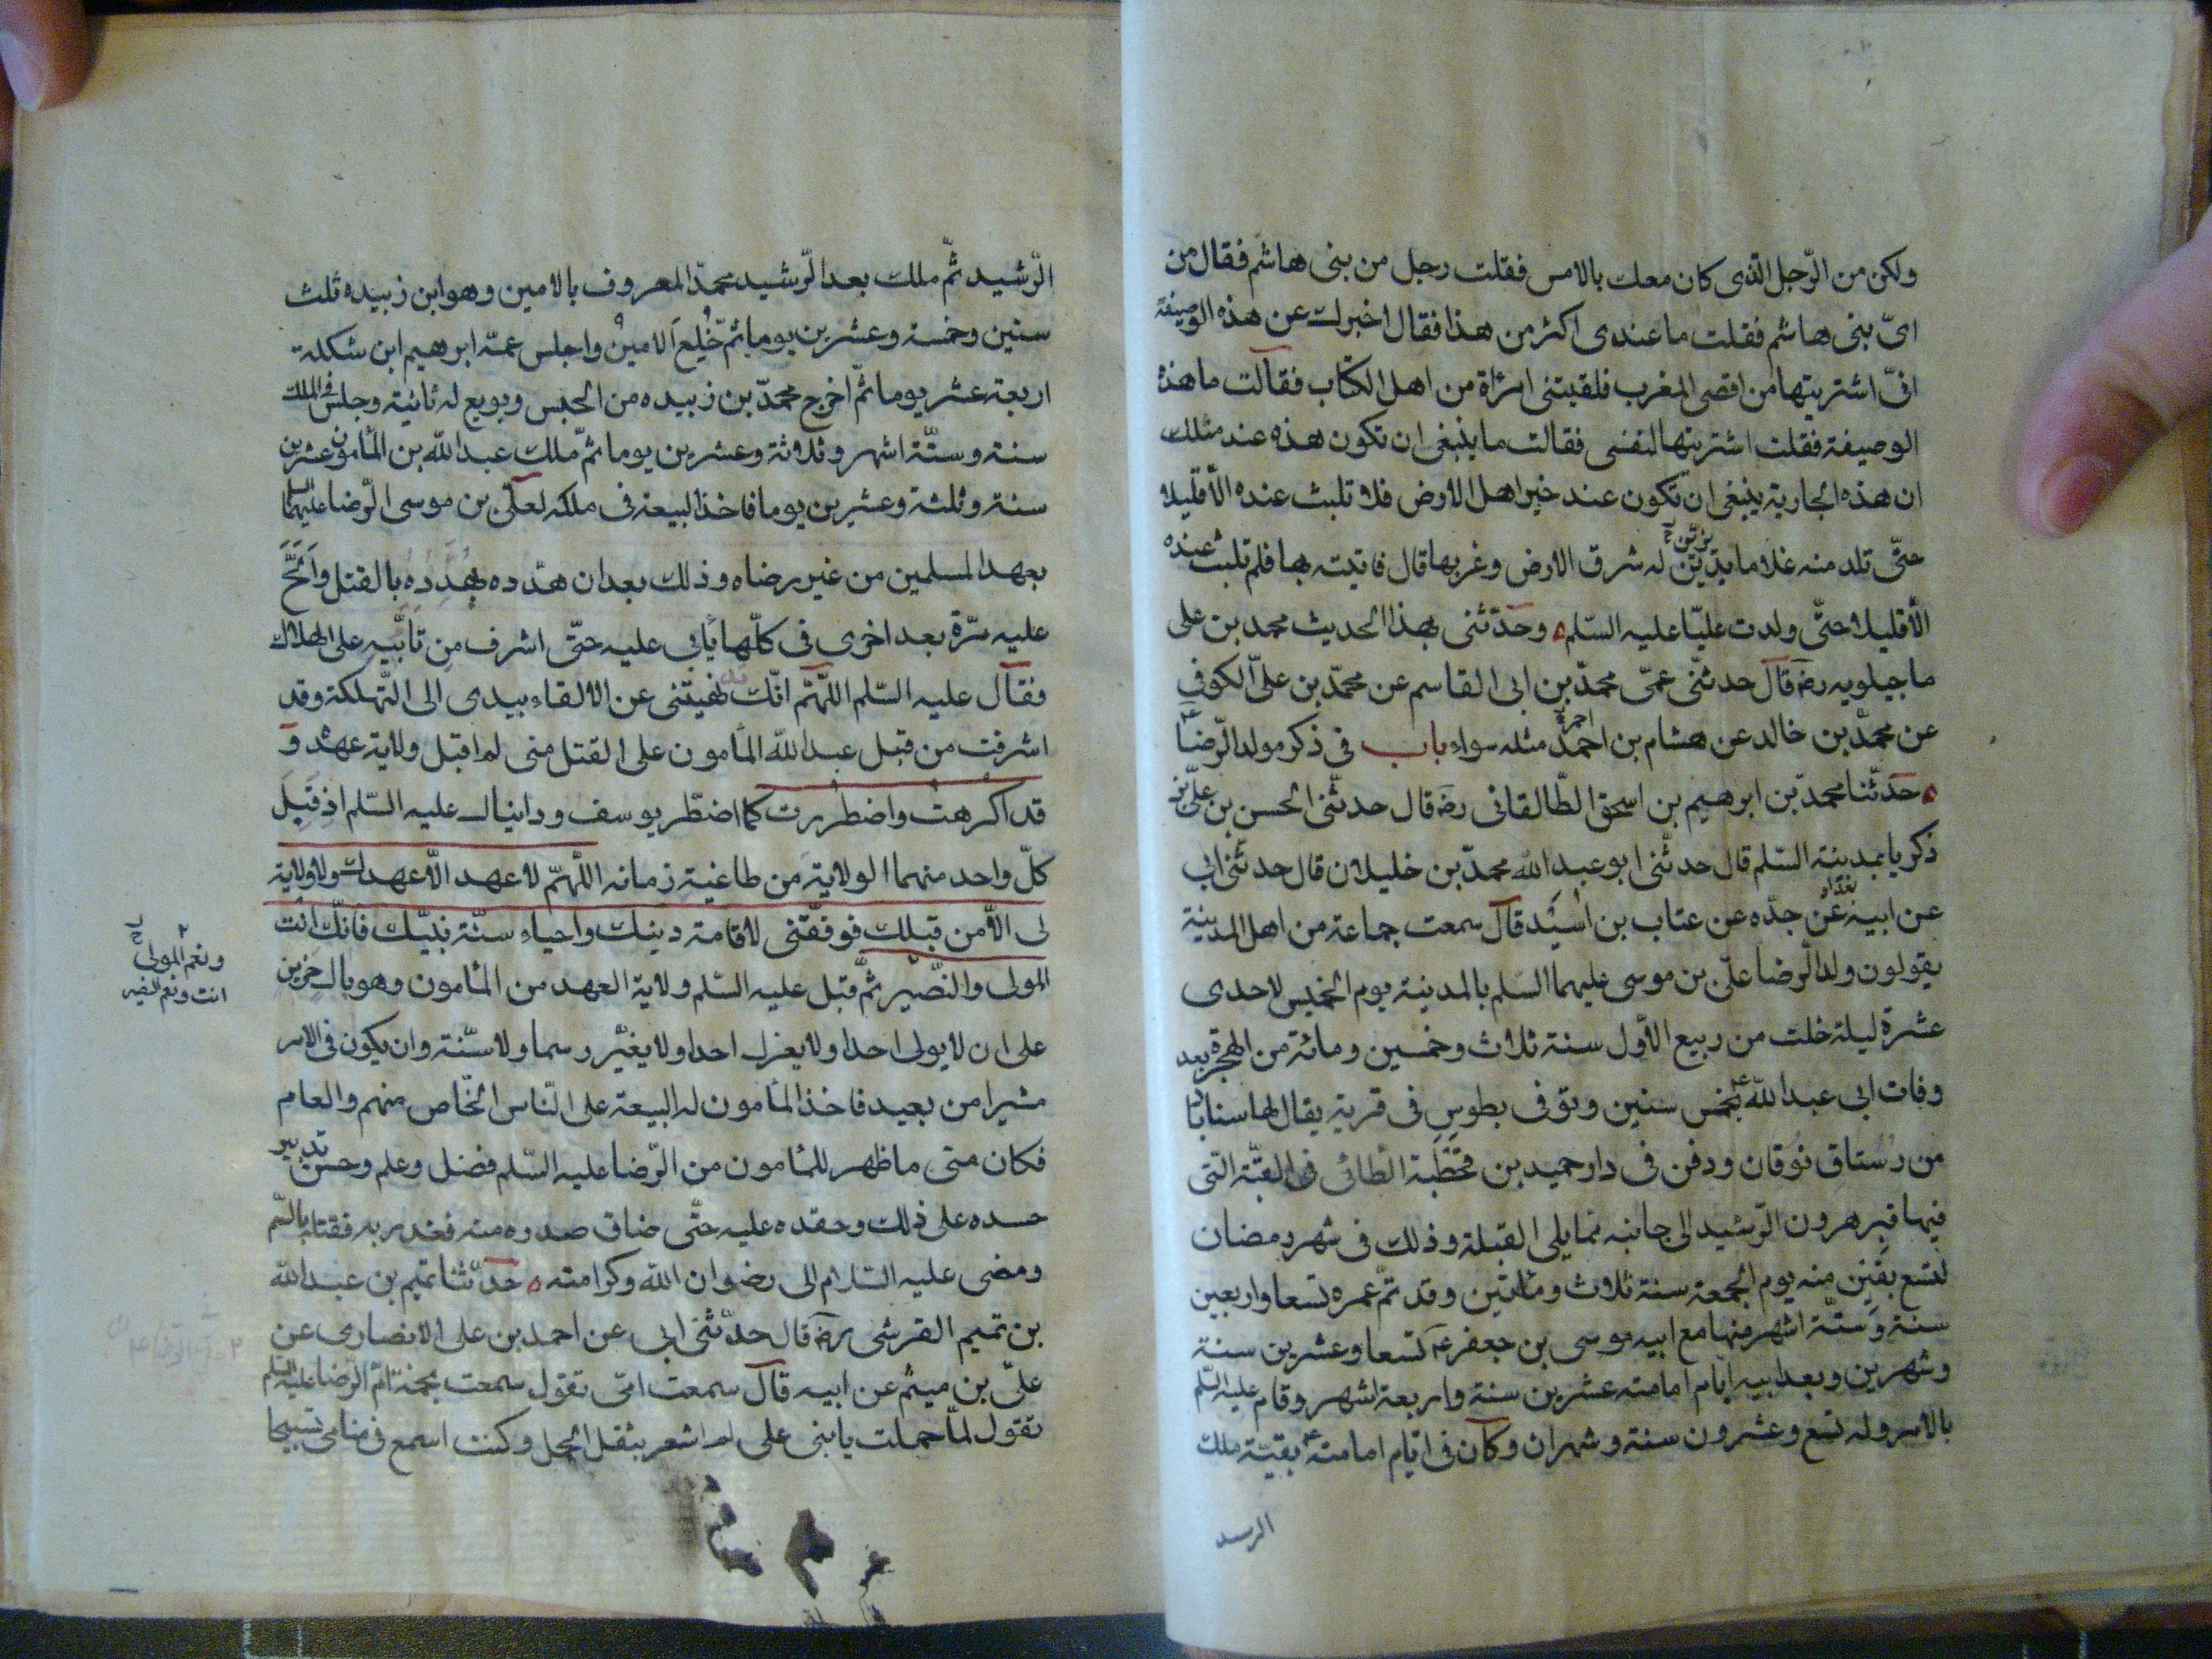 ولكن من الرّجل الّذى كان معك بالامس فقلت رجل من بنى هاشم فقال من
اىّ بنى هاشم فقلت ما عندى اكثر من هذا فقال اخبرك عن هذه الوصيفة
انّى اشتريتها من اقصى المغرب فلقيتنى امرأة من اهل الكتاب فقالت ما هذه
الوصيفة فقلت اشتريتها لنفسى فقالت ما ينبغى ان تكون هذه عند مثلك
ان هذه الجارية ينبغى ان تكون عند خير اهل الارض فلا تلبث عنده الّا قليلا
حتّى تلد منه غلاما يدين له شرق الارض وغربها قال فاتيته بها فلم تلبث عنده
الّا قليلا حتّى ولدت عليّا عليه السّلم وحدّثنى بهذا الحديث محمد بن على
ماجيلويه رضه قال حدثنى عمّى محمّد بن ابى القاسم عن محمّد بن علىّ الكوفى
عن محمّد بن خالد عن هشام بن احمد مثله سواء باب فى ذكر مولد الرّضا ع
حدّثنا محمّد بن ابرهيم بن اسحق الطّالقانى رضه قال حدثنى الحسن بن علىّ بن
ذكريا بمدينة السّلم قال حدثنى ابو عبد الله محمّد بن خليلان قال حدثنى ابى
بغداد
عن ابيه عن جدّه عن عتاب بن اسَيْد قال سمعت جماعة من اهل المدينة
يقولون ولد الرّضا علىّ بن موسى عليهما السّلم بالمدينة يوم الخميس لاحدى
عشرة ليلة خلت من ربيع الاوّل سنة ثلاث وخمسين ومائة من الهجرة بعد
وفات ابى عبد الله ع بخمس سنين وتوفى بطوس فى قرية يقال لها سناباد
من رُستاق نُوقان ودفن فى دار حميد بن قحطبة الطائى فى القبّة الّتى
فيها قبر هرون الرّشيد الى جانبه ممّا يلى القبلة وذلك فى شهر رمضان
لتسع بقين منه يوم الجمعة سنة ثلاث ومأتين وقد تمّ عمره تسعا واربعين
سنة وستّة اشهر منها مع ابيه موسى بن جعفر ع تسعا وعشرين سنة
وشهرين وبعد ابيه ايام امامته عشرين سنة واربعة اشهر وقام عليه السّلم
بالامر وله تسع وعشرون سنة وشهران وكان فى ايّام امامته ع بقيّة ملك
الرشيد
الرّشيد ثمّ ملك بعد الرّشيد محمّد المعروف بالامين وهو ابن زبيده ثلث
سنين وخمسة وعشرين يوما ثمّ خُلِعَ الامينُ واجلس عمّه ابرهيم ابن شكلة
اربعة عشر يوما ثمّ اخرج محمّد بن زبيده من الحبس وبويع له ثانية وجلس فى الملك
سنة وستّة اشهر وثلاثة وعشرين يوما ثمّ ملك عبد الله بن المأمون عشرين
سنة وثلثة وعشرين يوما فاخذ البيعة فى ملكه لعلىّ بن موسى الرّضا عليهما السلم
بعهد المسلمين من غير رضاه وذلك بعد ان هدّده بالقتل وَاَلَحَّ
عليه مرّة بعد اخرى فى كلّها يأبى عليه حتّى اشرف مِن تَأَبّيهِ على الهلاك
فقال عليه السّلم اللّهمّ انّك نهيتنى عن الالقاء بيدى الى التّهلكة وقد
اشرفت من قبل عبد الله المأمون على القتل متى لم اقبل ولاية عهده و
قد اكرهت واضطررت كما اضطرّ يوسف ودانيال عليه السّلم اذ قَبِلَ
كلّ واحد منهما الولاية من طاغية زمانه اللّهمّ لا عهد الّا عهدك ولا ولاية
لى الّا من قبلك فوفّقنى لاقامة دينك واحياء سنّة نبيّك فانّك انت
المولى والنّصير ثمّ قبل عليه السّلم ولاية العهد من المأمون وهو باك حزين
ونعم المولى
انت ونعم النصير
على ان لا يولى احدا ولا يعزل احدا ولا يغيّر رسما ولا سنّة وان يكون فى الامر
مشيرا من بعيد فاخذ المأمون له البيعة على النّاس الخّاص منهم والعام
فكان متى ما ظهر للمأمون من الرّضا عليه السّلم فضل وعلم وحسن تدبير
حسده على ذلك وحقده عليه حتّى ضاق صدره منه فغدر به فقتله بالسّم
ومضى عليه السّلام الى رضوان الله وكرامته حدّثنا تميم بن عبد الله
بن تميم القرشى رضه قال حدّثنى ابى عن احمد بن على الانصارى عن
علىّ بن ميثم عن ابيه قال سمعت امّى تقول سمعت نجمة امّ الرّضا عليه السلم
تقول لمّا حملت يا بنى على لم اشعر بثقل الحمل وكنت اسمع فى منامى تسبيحا